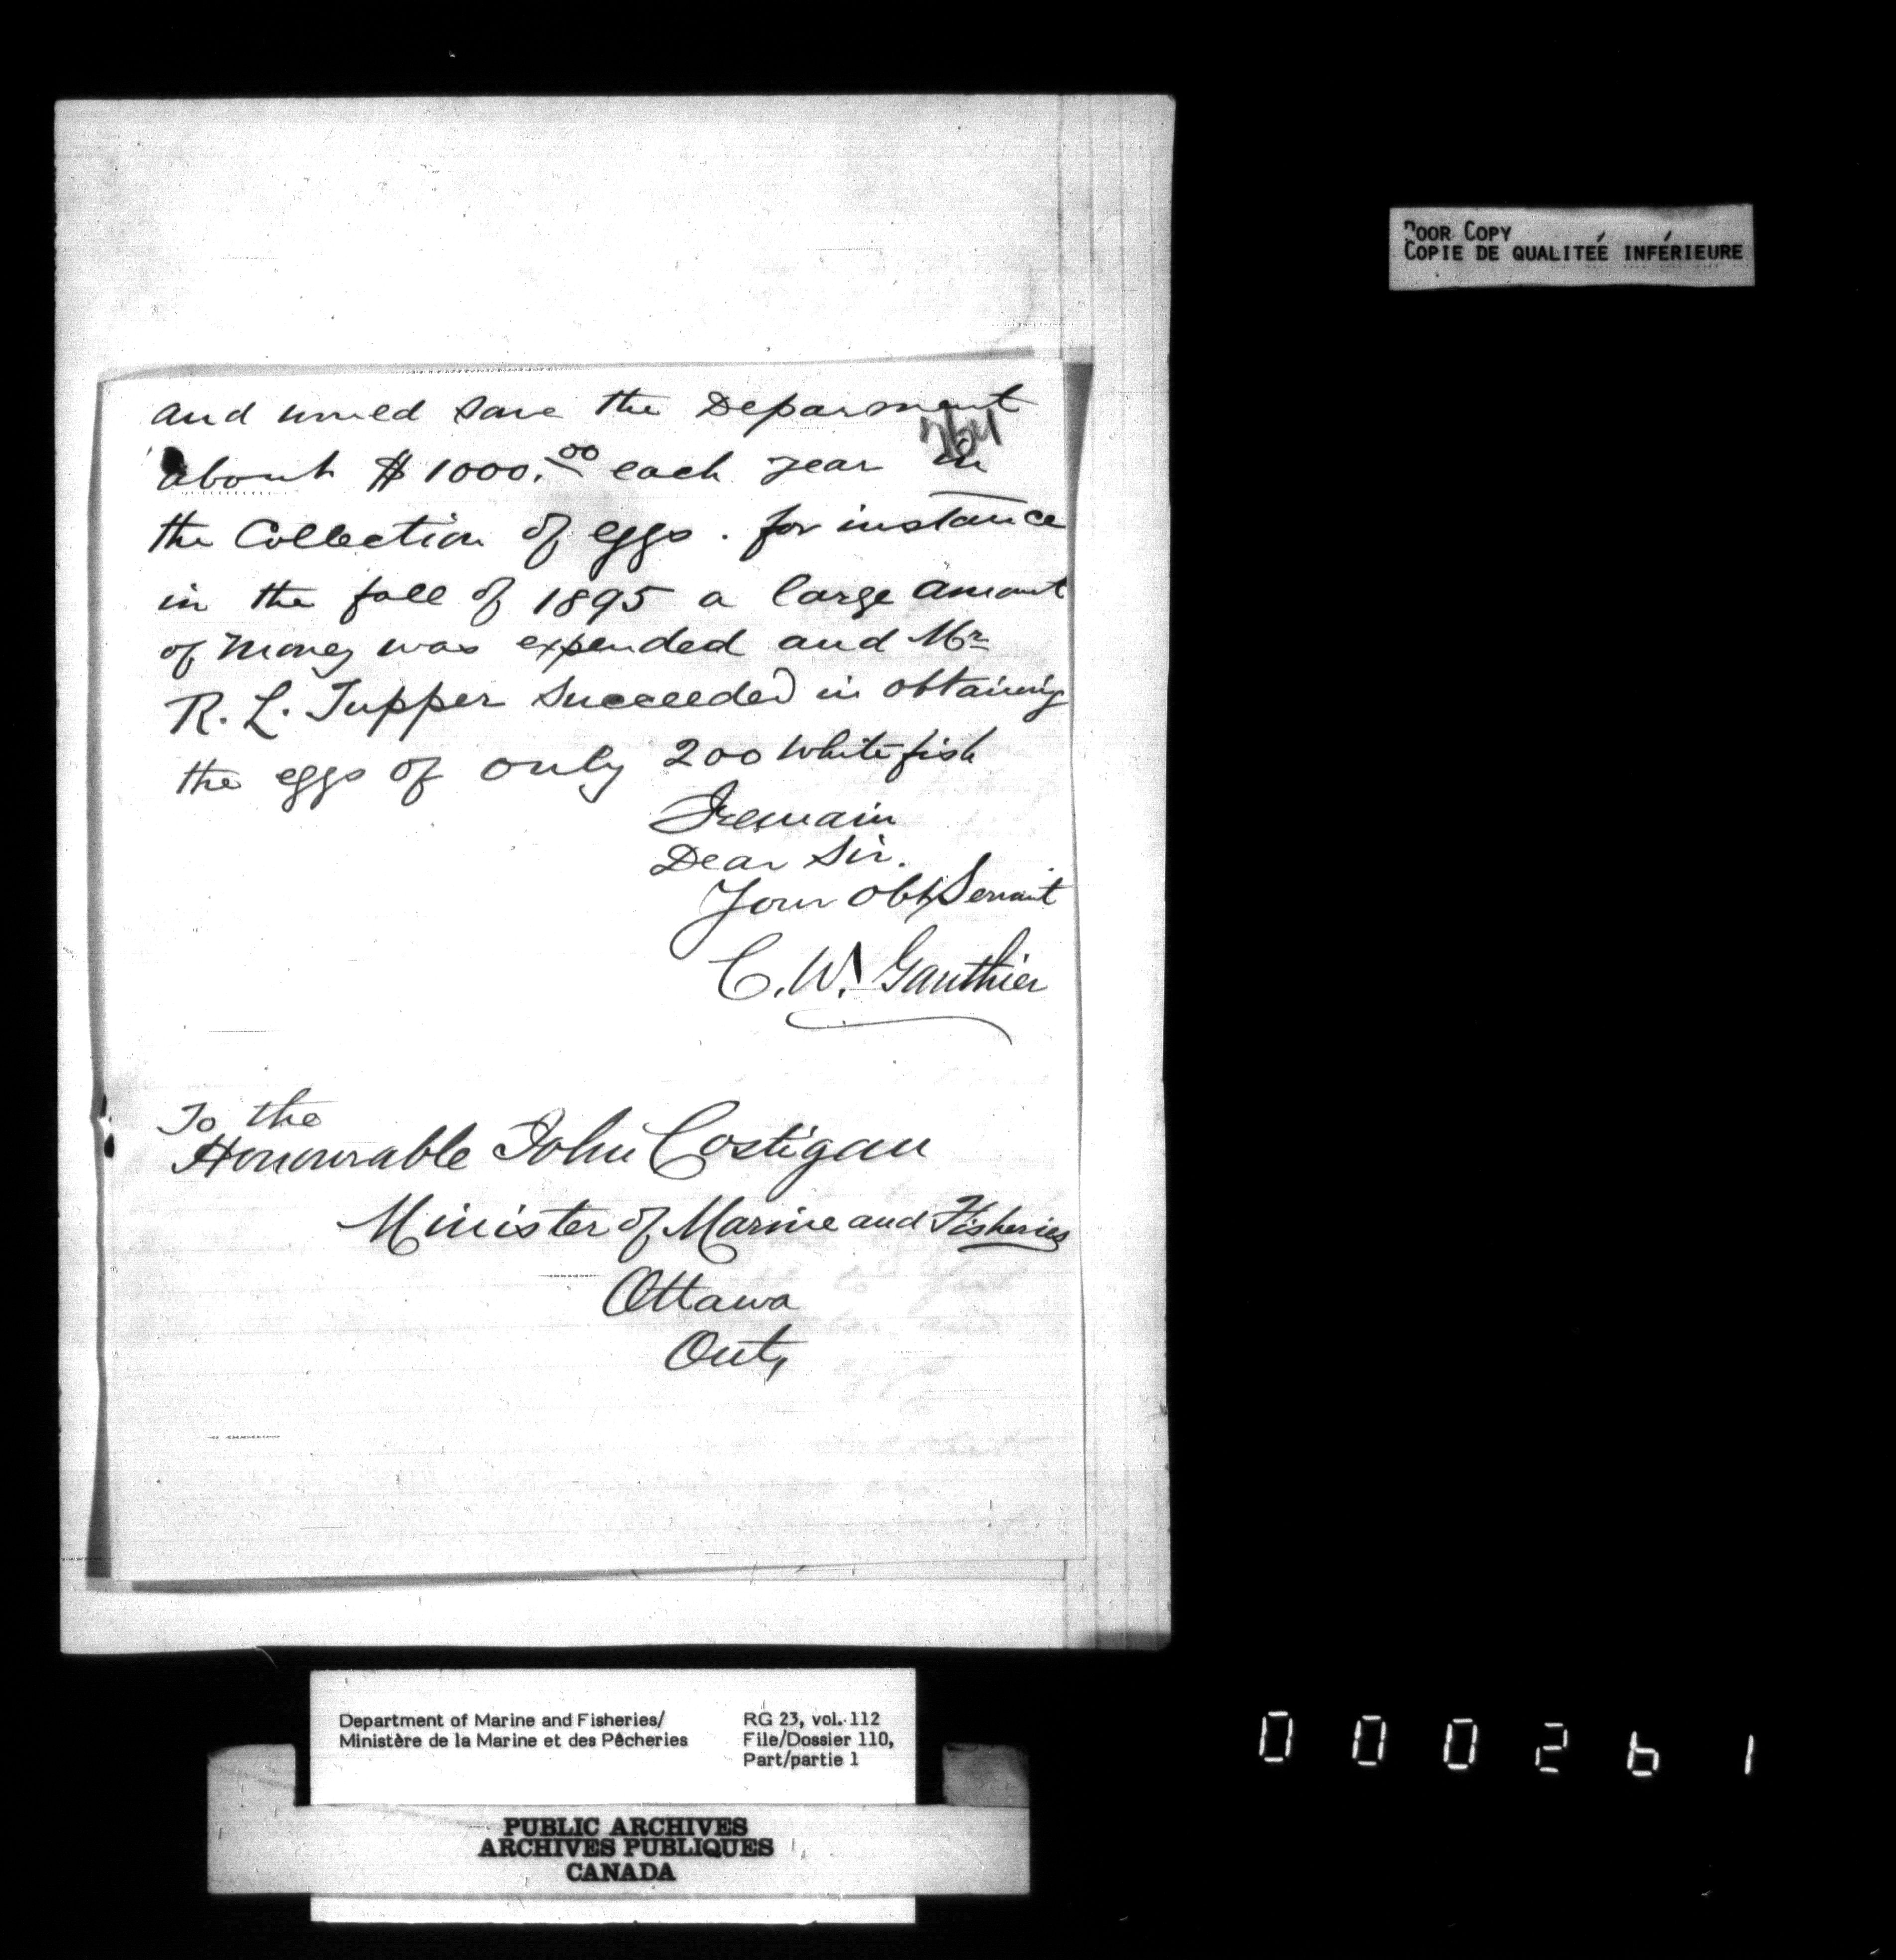 and would save the Deparment
264
about $1000.00 each year in
the Collection of eggs. for instance
in the fall of 1895 a large amount
of money was expended and Mr
R. L. Tupper succeeded in obtaining
the eggs of only 200 Whitefish
I remain
Dear Sir.
Your Obt Servant
C. W. Gauthier
To the
Honourable John Costigan
Minister of Marine and Fisheries
Ottawa
Ont,
POOR COPY
COPIE DE QUALITEÉ INFÉRIEURE
Department of Marine and Fisheries/
Ministère de la Marine et des Pêcheries
RG 23, vol. 112
File/Dossier 110,
Part/partie 1
PUBLIC ARCHIVES
ARCHIVES PUBLIQUES
CANADA
000261